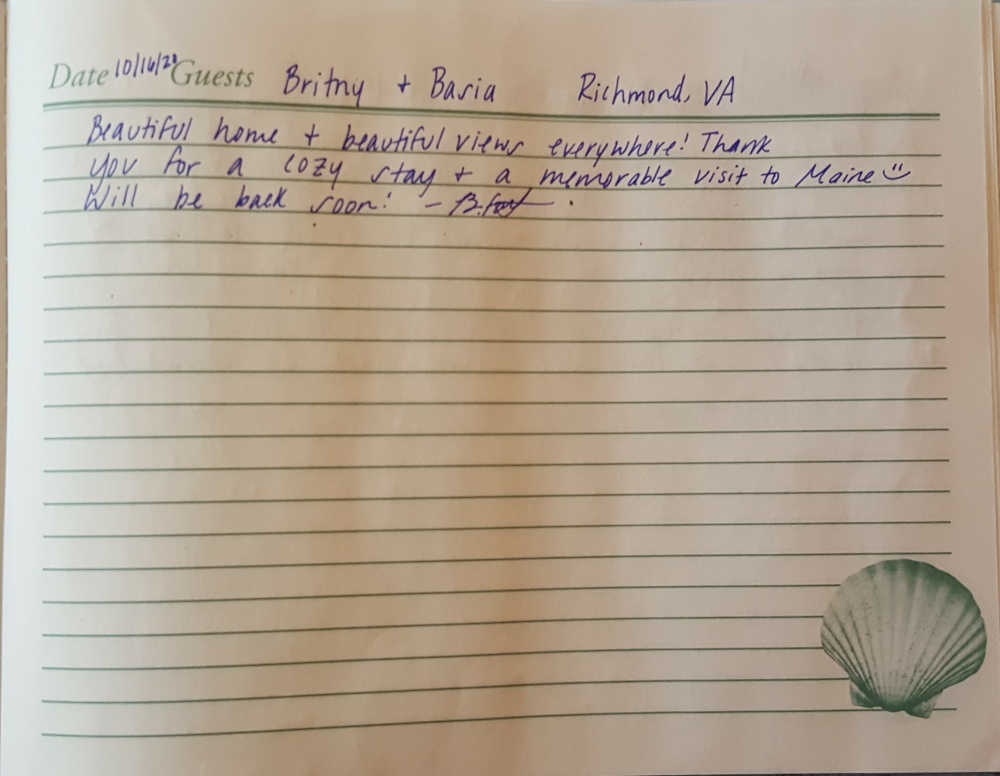 Date 10/16/21 Guests Britny + Basia Richmond, VA
Beautiful home + beautiful views everywhere! Thank
you for a cozy stay + a memorable visit to Maine :)
Will be back soon! -